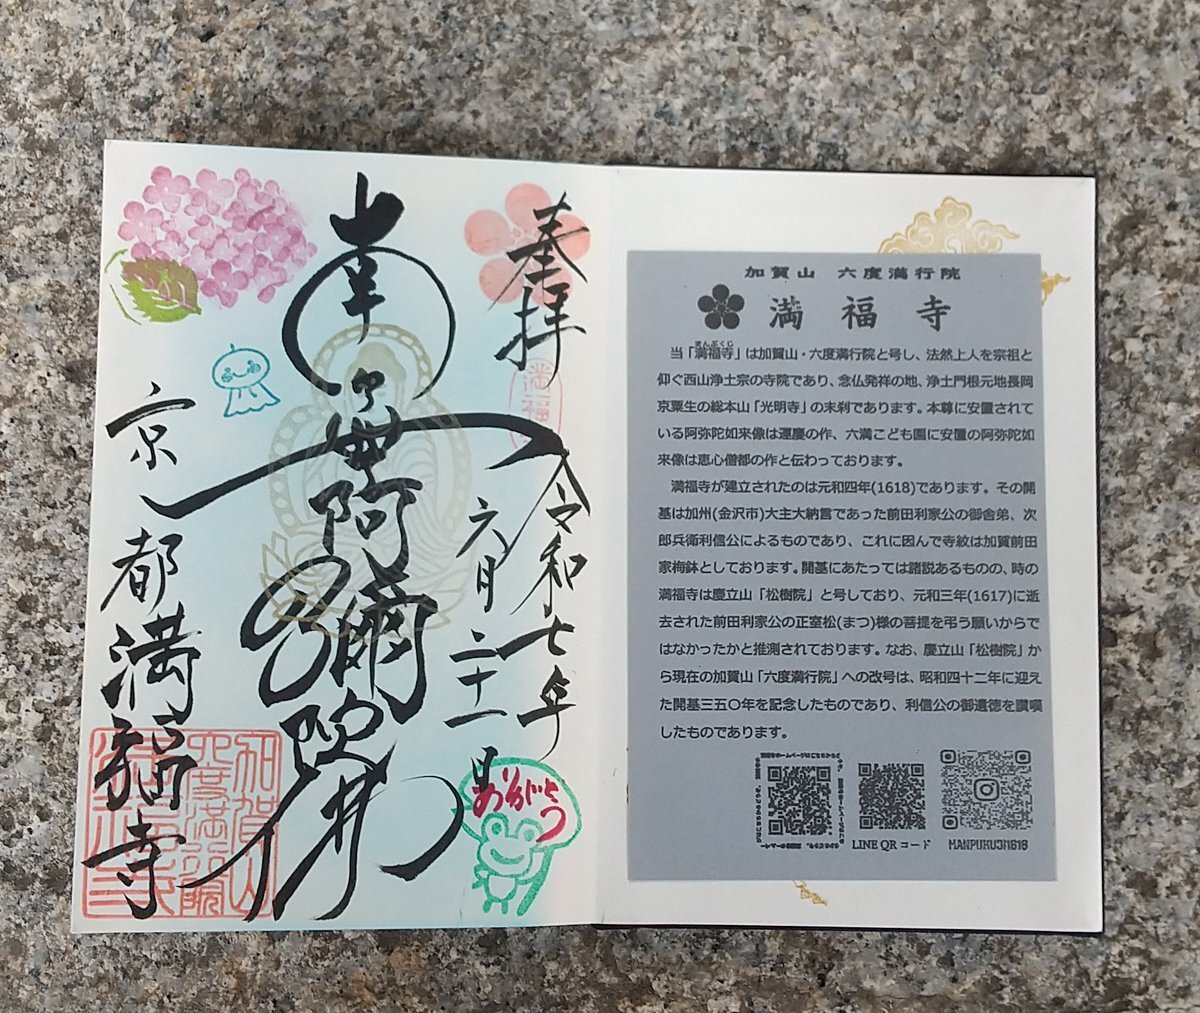 奉拝
満福
令和七年
六月二十一日
ありがとう
南無阿彌陀佛
京都満福寺
加賀山
六度満行院
加賀山 六度満行院
満福寺
まんぷくじ
当「満福寺」は加賀山・六度満行院と号し、法然上人を宗祖と
仰ぐ西山浄土宗の寺院であり、念仏発祥の地、浄土門根元地長岡
京粟生の総本山「光明寺」の末刹であります。本尊に安置されて
いる阿弥陀如来像は運慶の作、六満こども園に安置の阿弥陀如
来像は恵心僧都の作と伝わっております。
満福寺が建立されたのは元和四年(1618)であります。その開
基は加州(金沢市)大主大納言であった前田利家公の御舎弟、次
郎兵衛利信公によるものであり、これに因んで寺紋は加賀前田
家梅鉢としております。開基にあたっては諸説あるものの、時の
満福寺は慶立山「松樹院」と号しており、元和三年(1617)に逝
去された前田利家公の正室松(まつ)様の菩提を弔う願いからで
はなかったかと推測されております。なお、慶立山「松樹院」か
ら現在の加賀山「六度満行院」への改号は、昭和四十二年に迎え
た開基三五〇年を記念したものであり、利信公の御遺徳を讃嘆
したものであります。
LINE QRコード
MANPUKUJI1618